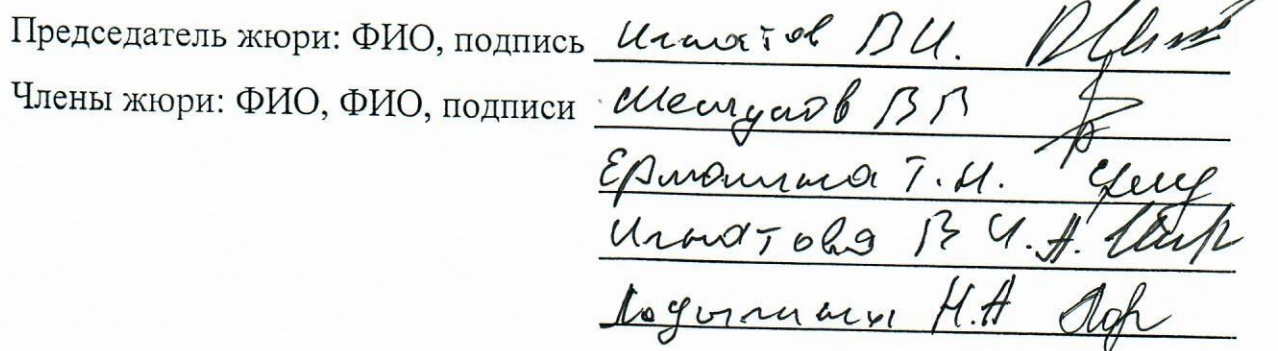 Председатель жюри: ФИО, подпись Игнатов В И.
Члены жюри: ФИО, ФИО, подписи В В
Ермолина Т.Н.
Игнатова В И.
Н.А